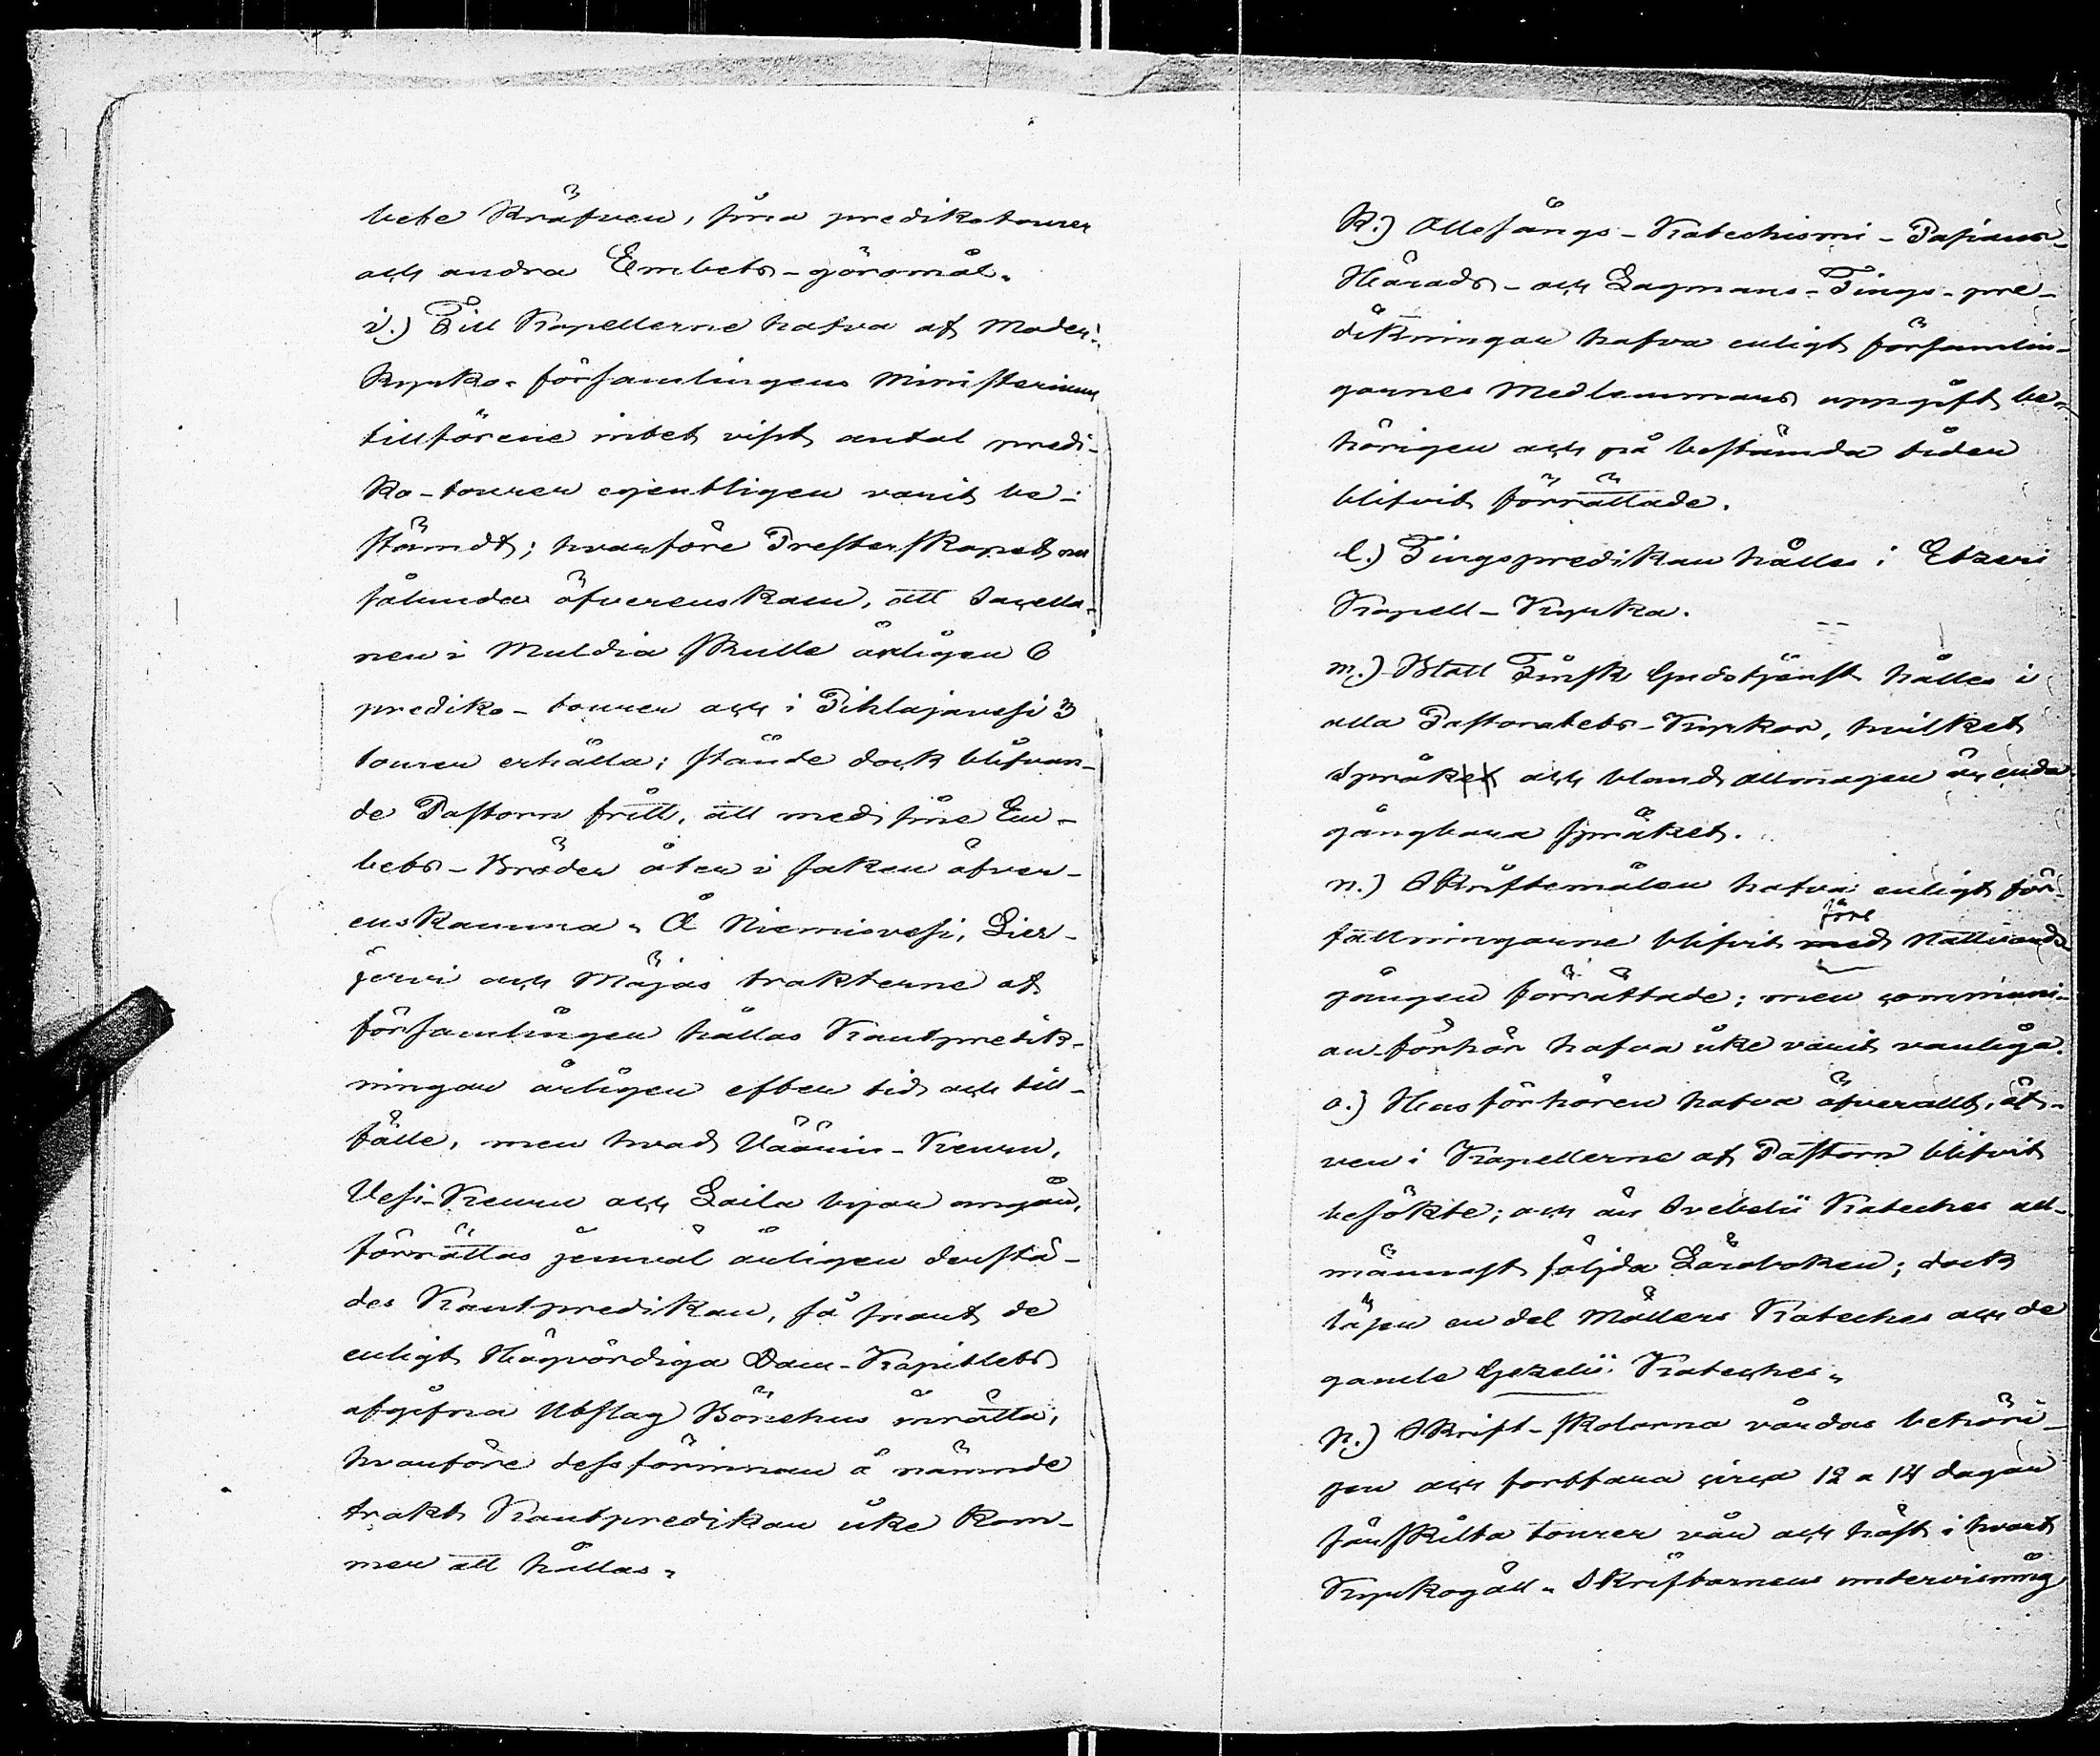 bete kräfven, sina predikotourer
och andra Embets-göromål.
i.) Till Kapellerne hafva af Moder-
kyrko-församlingens Ministerium
tillförene intet visst antal predi-
ko-tourer egentligen varit be-
stämdt; hvarföre Presterskapet nu
sålunda öfverenskom, att Sacella-
nen i Muldia skulle årligen 6
prediko-tourer och i Pihlajavesi 3
tourer erhålla; stånde dock blifvan-
de Pastorn fritt, att med sine Em-
bets-Bröder åter i saken öfver-
enskomma. Å Niemisvesi, Lies-
jerwi och Myllymäki trakterne af
församlingen hållas Kantpredik-
ningar årligen efter tid och till-
fälle, men hvad Väärin-Keuru,
Vesi-Keuru och Laila byar angår,
förrättas jemväl årligen derstä-
des Kantpredikan, så snart de
enligt Högvördiga Dom-Kapitlets
afgifna Utslag Bönehus inrätta,
hvarföre dessförinnan å nämnde
trakt Kantpredikan icke kom-
mer att hållas.
k.) Ottesångs-Katechismi-Passions-
Härads- och Lagmans-Tings-pre-
dikningar hafva enligt församlin-
garnes Medlemmars uppgift be-
hörigen och på bestämda tider
blifvit förrättade.
l.) Tingspredikan hålles i Etseri
Kapell-Kyrka.
m.) Blott Finsk Gudstjenst hålles i
alla Pastoratets-Kyrkor, hvilket
språket och bland allmogen är enda
gångbara språket.
n.) Skriftemålen hafva enligt för-
före
fattningarne blifvit med Nattvards-
gången förrättade; men communi-
an förhör hafva icke varit vanliga.
o.) Husförhören hafva öfverallt, äf-
ven i Kapellerne af Pastorn blifvit
besökte; och är Svebelii Kateches all-
männast följda Läroboken; dock
läsen en del Möllers Kateches och de
gamle Gezelii Kateches.
p.) Skrift-skolorna vårdas behöri-
gen och fortfara circa 12 a 14 dagar
särskilta tourer vår och höst i hvart
Kyrkogäll. Skriftbarnens undervisning